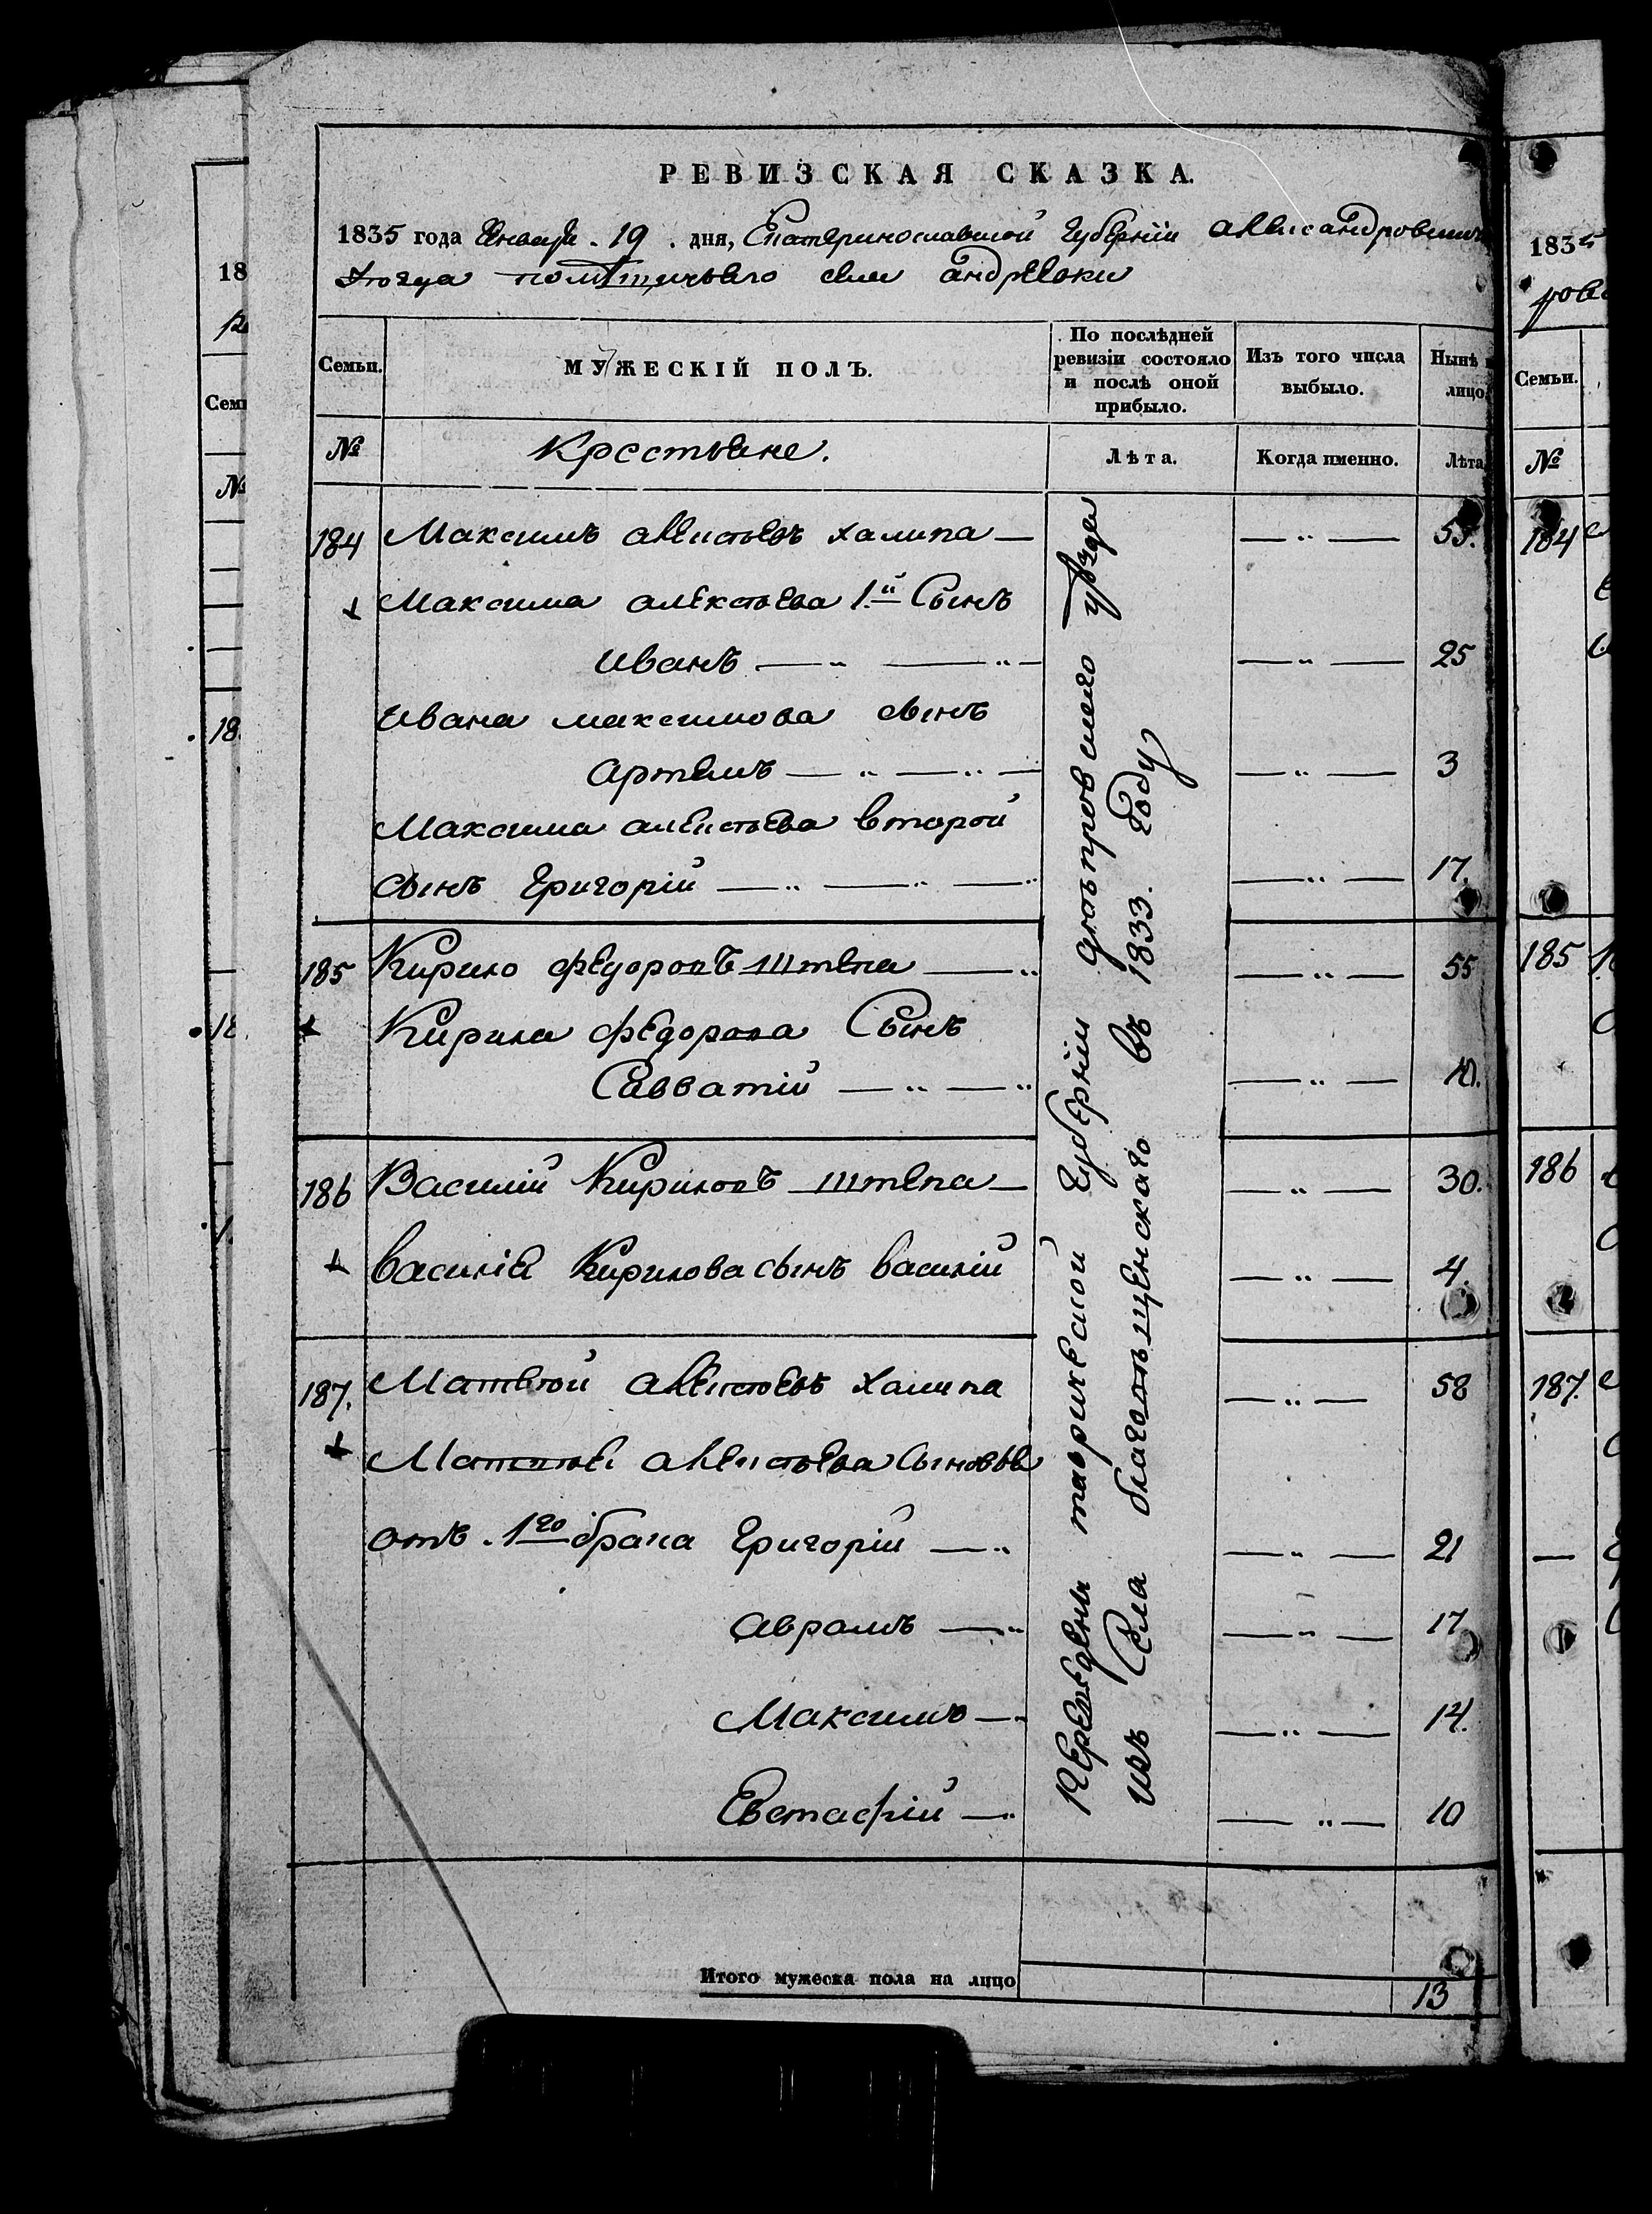 РЕВИЗСКАЯ СКАЗКА.
1835 года Января 19 дня, Екатеринославской губернiи Александровскаго
уезда помѣщичьяго села Андрѣевки
Семьи.
МУЖЕСКIЙ ПОЛЪ.
По послѣдней ревизiи состояло и послѣ оной прибыло.
Изъ того числа выбыло.
Нынѣ
лицо
№
Крестьяне.
Лѣта.
Когда именно.
Лѣта
184 Максимъ алексѣевъ халипа — — " — 55.
Максима алексѣева 1.й Сынъ
иванъ — " — " — — " — 25
ивана максимова сынъ
артемъ — " — " — — " — 3
Максима алексѣева второй
сынъ григорiй — " — " — — " — 17.
185 Кирило федоровъ штепа — " — " — 55
Кирила федорова Сынъ
Савватiй — " — " — " — 10.
186 Василiй Кириловъ штепа — — " — 30.
василiя Кирилова сынъ василiй — " — 4.
187. Матвѣй алексѣевъ халипа — " — 58
Матвѣя алексѣева сыновья
отъ 1го брака григорiй — " — " — 21
аврамъ — " — " — 17
Максимъ — " — " — 14.
Евстафiй — " — " — 10
Переведены таврической губернiи днѣпровскаго уѣзда
изъ Села благовѣщенскаго въ 1833. году
Итого мужеска пола на лицо 13
1835
Семьи.
№
184
185
186
187.